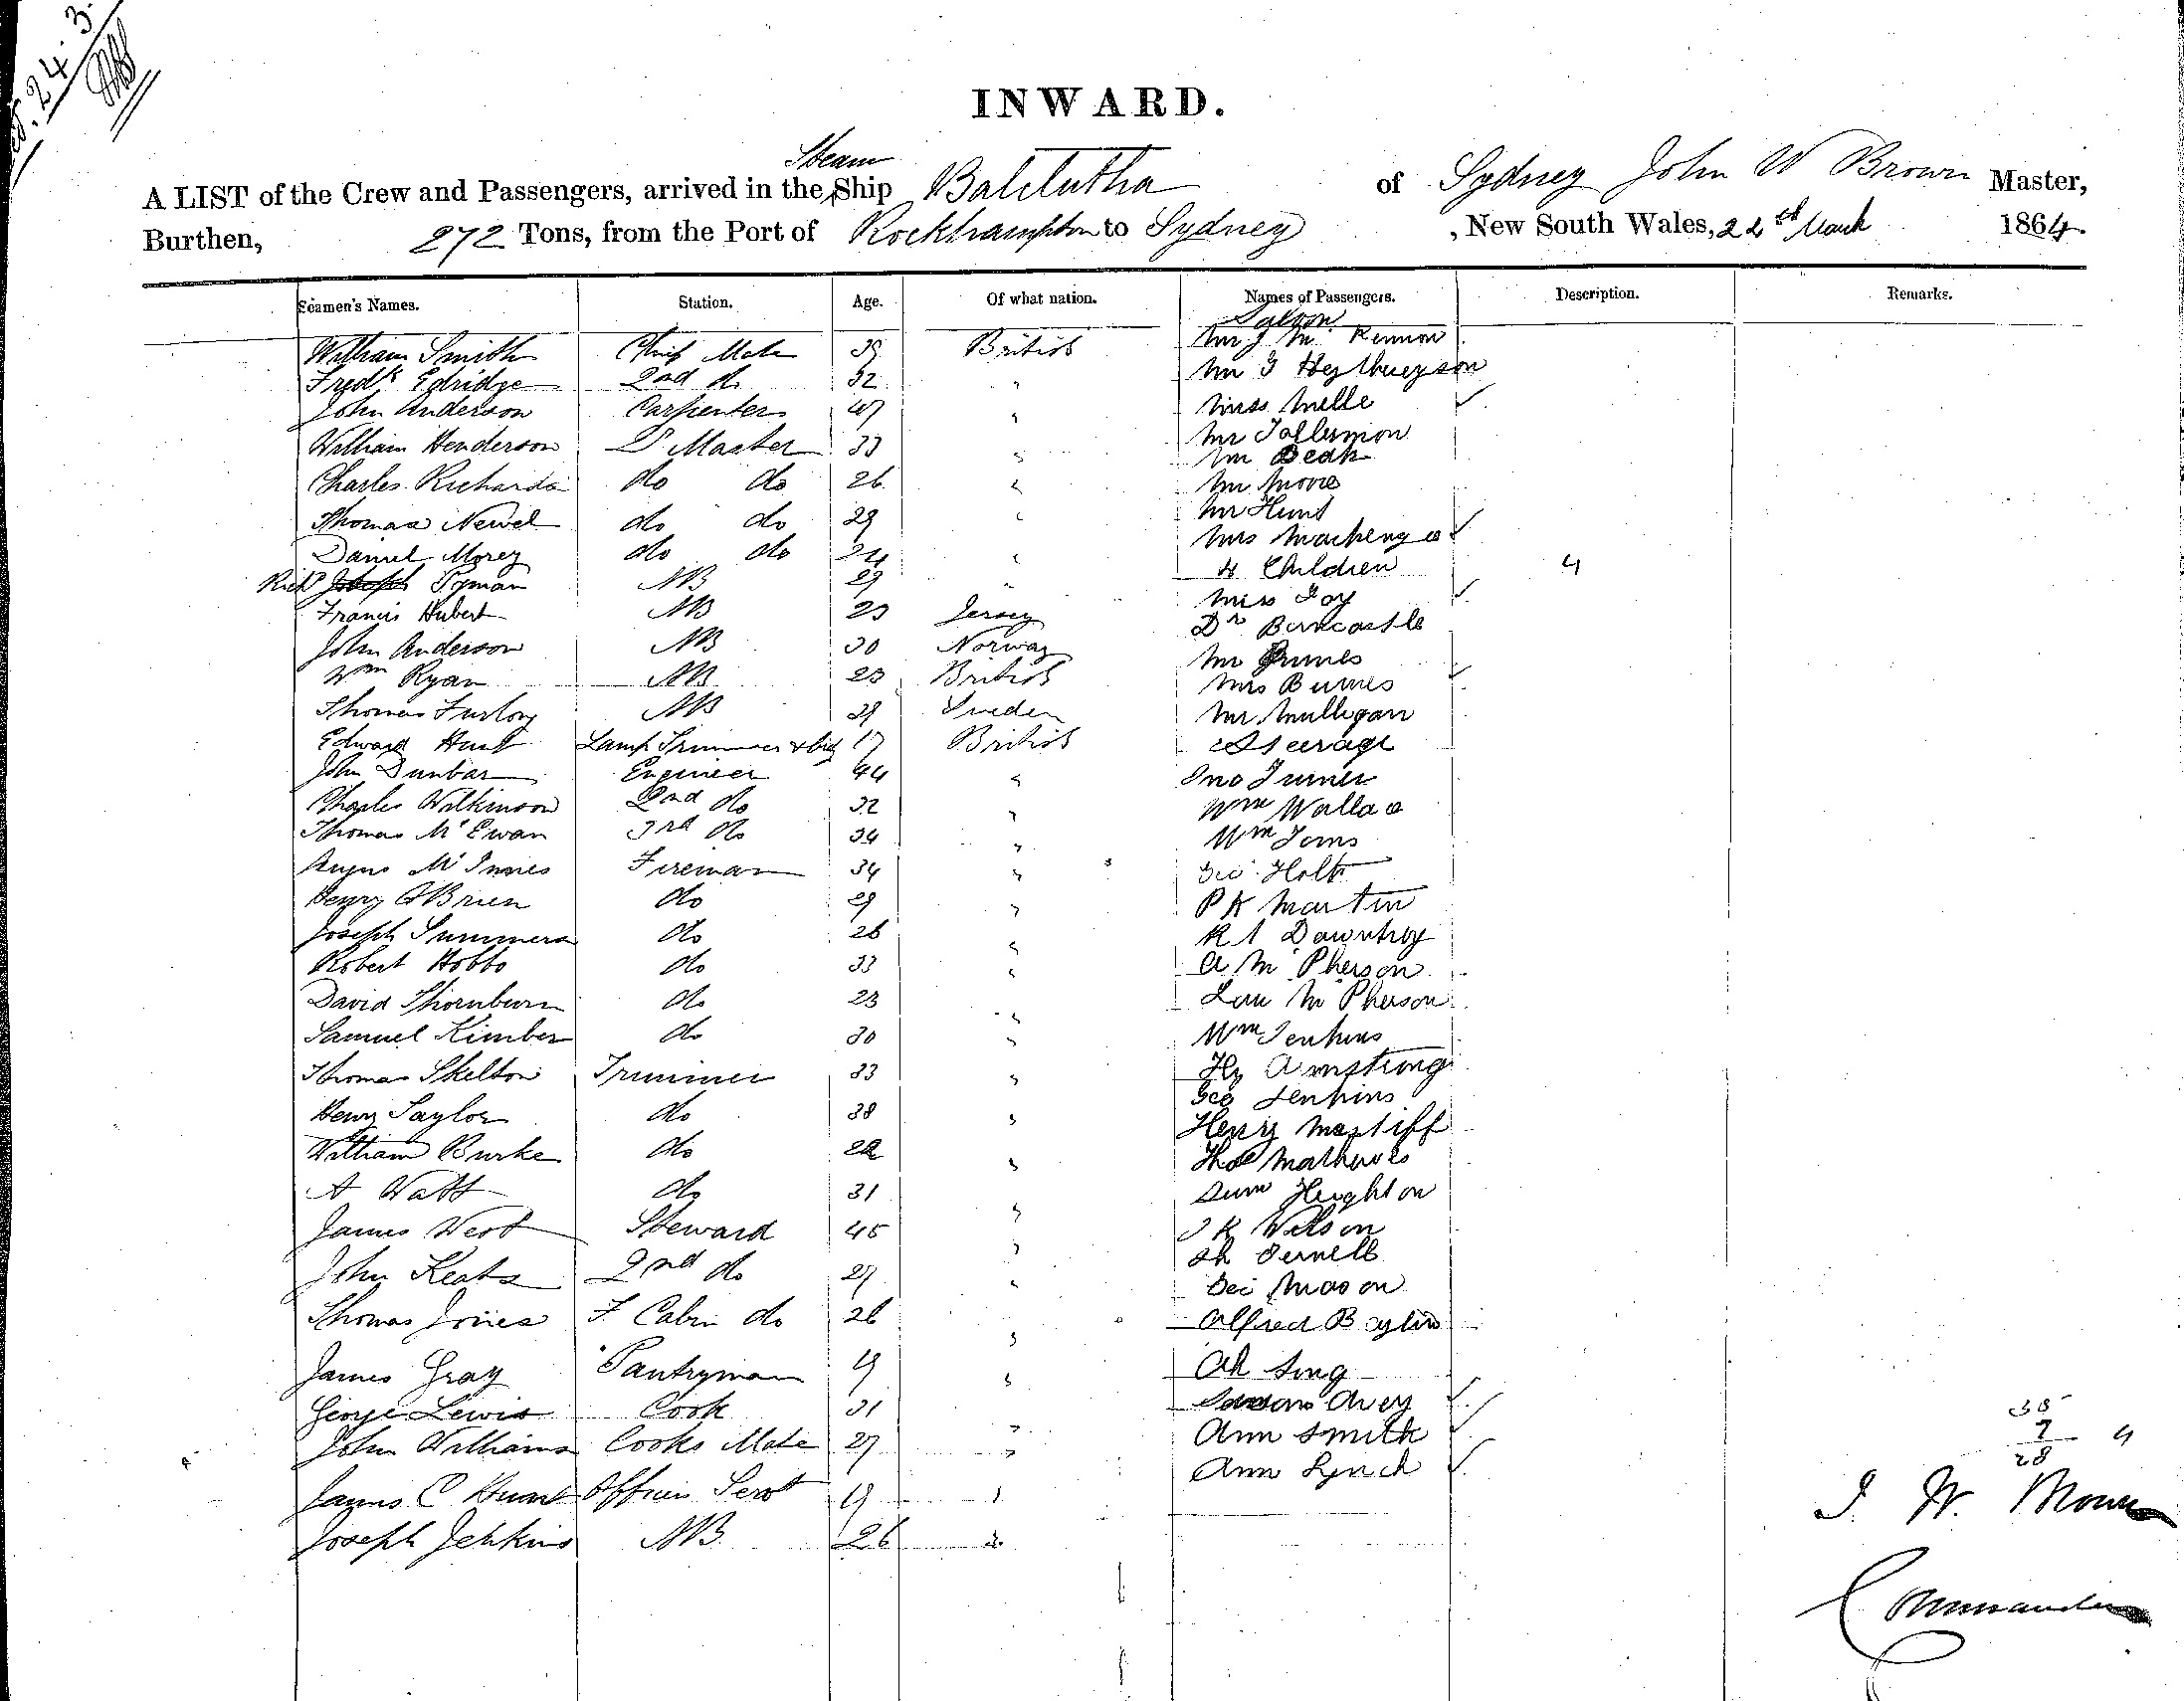 24.3.
INWARD.
Steam
A LIST of the Crew and Passengers, arrived in the Ship Balclutha of Sydney John W Brown Master,
Burthen, 272 Tons, from the Port of Rockhampton to Sydney , New South Wales, 24th March 1864.
Seamen's Names. Station. Age. Of what nation. Names of Passengers. Description. Remarks.
Saloon
William Smith Chief Mate 39 British Mr J Mc Kennon
Fredk Edridge 2nd do 32 " Mr G
John Anderson Carpenter 47 " Miss Mille
William Henderson Q Master 33 " Mr Tallerman
Mr Beak
Charles Richards do do 26 " Mr Moore
Thomas Newel do do 29 " Mr Hunt
Mrs
Daniel Morey do do 24 " 4 Children 4
Richd Joseph Pyman AB 29 " Miss Foy
Francis Hubert AB 23 Jersey Dr Berncastle
John Anderson AB 30 Norway Mr
Wm Ryan AB 23 British Mrs Burnes
Thomas Furlong AB 29 Sweden Mr Mulligan
Edward Hunt Lamp Trimmer & 17 British Steerage
John Dunbar Engineer 44 " Jno Turner
Charles Wilkinson 2nd do 32 " Wm Wallace
Thomas McEwan 3rd do 34 " Wm Toms
Angus McInnes Fireman 34 " Geo Holt
Henry OBrien do 29 " P K Martin
Joseph Summers do 26 " R A
Robert Hobbs do 33 " A McPherson
David Thornburn do 23 " Lau McPherson
Samuel Kimber do 30 " Wm Jenkins
Thomas Skelton Trimmer 33 " Hy Armstrong
Geo Jenkins
Henry Taylor do 38 " Henry Mastiff
William Burke do 22 " Thos Mathews
A Watt do 31 " Heighton
James West Steward 45 " J K Wilson
Ch
John Keats 2nd do 27 " Geo Mason
Thomas Jones F. Cabin do 26 " Alfred
James Gray Pantryman 19 " Ah Sing
George Lewis Cook 31 Avey
John Williams Cooks Mate 27 " Ann Smith
Ann Lynch
James C Hunt Officers Servt 19 "
Joseph Jenkins AB 26 "
35
7 4
28
J. W. Brown
Commander